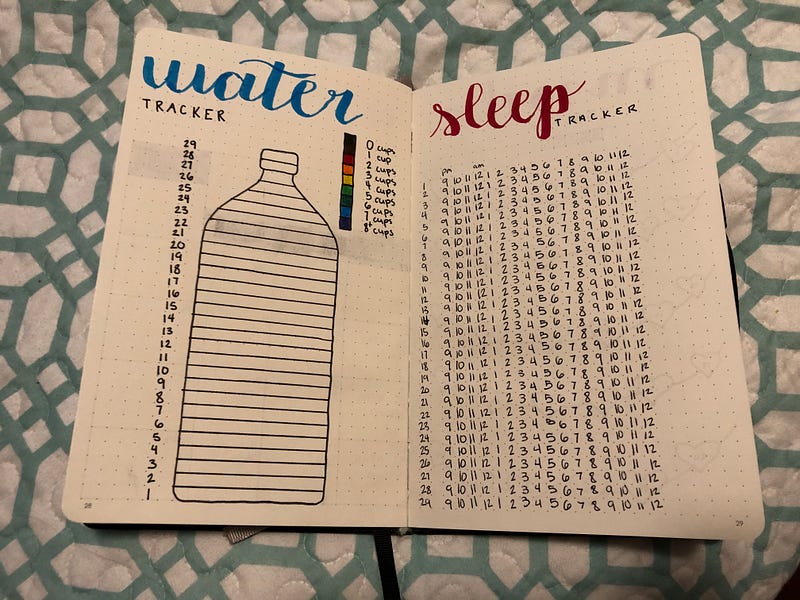 water
TRACKER
0 cups
1 cup
2 cups
3 cups
4 cups
5 cups
6 cups
7 cups
8+ cups
29
28
27
26
25
24
23
22
21
20
19
18
17
16
15
14
13
12
11
10
9
8
7
6
5
4
3
2
1
28
sleep
TRACKER
pm am
1 9 10 11 12 1 2 3 4 5 6 7 8 9 10 11 12
2 9 10 11 12 1 2 3 4 5 6 7 8 9 10 11 12
3 9 10 11 12 1 2 3 4 5 6 7 8 9 10 11 12
4 9 10 11 12 1 2 3 4 5 6 7 8 9 10 11 12
5 9 10 11 12 1 2 3 4 5 6 7 8 9 10 11 12
6 9 10 11 12 1 2 3 4 5 6 7 8 9 10 11 12
7 9 10 11 12 1 2 3 4 5 6 7 8 9 10 11 12
8 9 10 11 12 1 2 3 4 5 6 7 8 9 10 11 12
9 9 10 11 12 1 2 3 4 5 6 7 8 9 10 11 12
10 9 10 11 12 1 2 3 4 5 6 7 8 9 10 11 12
11 9 10 11 12 1 2 3 4 5 6 7 8 9 10 11 12
12 9 10 11 12 1 2 3 4 5 6 7 8 9 10 11 12
13 9 10 11 12 1 2 3 4 5 6 7 8 9 10 11 12
14 9 10 11 12 1 2 3 4 5 6 7 8 9 10 11 12
15 9 10 11 12 1 2 3 4 5 6 7 8 9 10 11 12
16 9 10 11 12 1 2 3 4 5 6 7 8 9 10 11 12
17 9 10 11 12 1 2 3 4 5 6 7 8 9 10 11 12
18 9 10 11 12 1 2 3 4 5 6 7 8 9 10 11 12
19 9 10 11 12 1 2 3 4 5 6 7 8 9 10 11 12
20 9 10 11 12 1 2 3 4 5 6 7 8 9 10 11 12
21 9 10 11 12 1 2 3 4 5 6 7 8 9 10 11 12
22 9 10 11 12 1 2 3 4 5 6 7 8 9 10 11 12
23 9 10 11 12 1 2 3 4 5 6 7 8 9 10 11 12
24 9 10 11 12 1 2 3 4 5 6 7 8 9 10 11 12
25 9 10 11 12 1 2 3 4 5 6 7 8 9 10 11 12
26 9 10 11 12 1 2 3 4 5 6 7 8 9 10 11 12
27 9 10 11 12 1 2 3 4 5 6 7 8 9 10 11 12
28 9 10 11 12 1 2 3 4 5 6 7 8 9 10 11 12
29 9 10 11 12 1 2 3 4 5 6 7 8 9 10 11 12
29